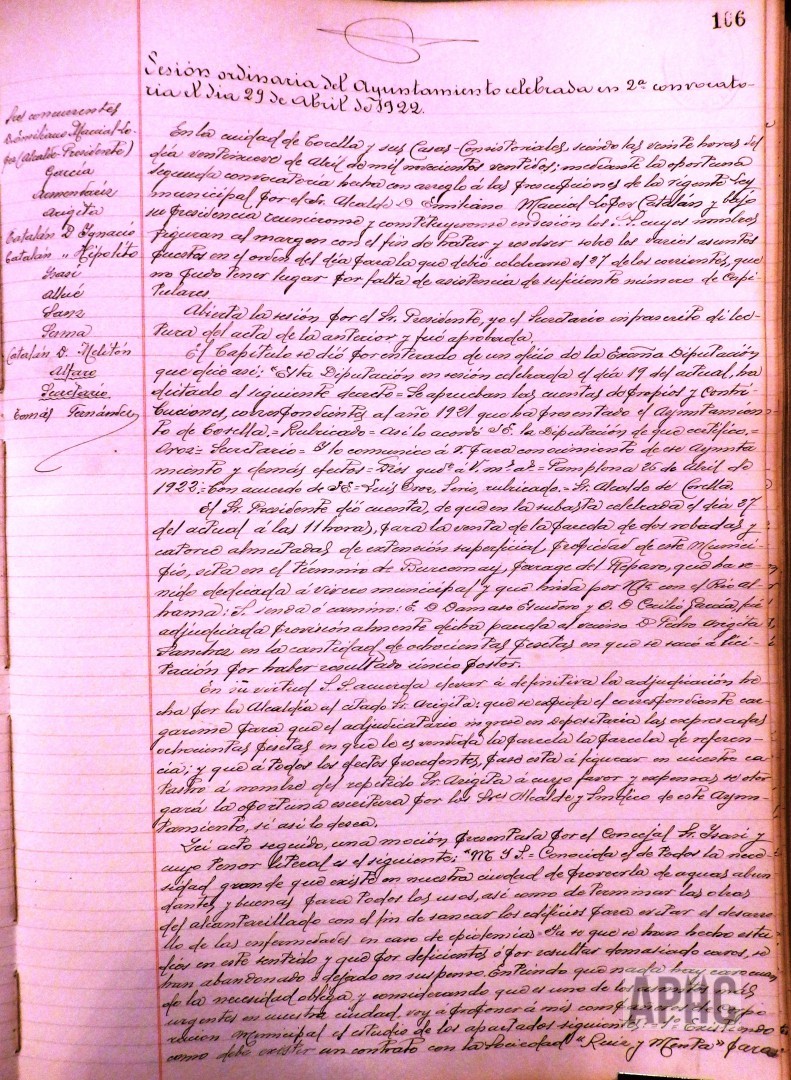 106
Sesión ordinaria del Ayuntamiento celebrada en 2ª convocato-
ria el dia 29 de Abril de 1922.
Sres concurentes
Emiliano Marcial Lo-
pez (Alcalde-Presidente)
Garcia
Armentariz
Arigita
Catalán D. Ignacio
Catalán " Hipolito
Isasi
Allué
Sanz
Serna
Catalán D. Melitón
Alfaro
Secretario
Tomás Fernández
En la ciudad de Corella y sus Casas-Consistoriales, siendo las veinte horas del
dia ventinueve de Abril de mil novecientos ventidos; mediante la oportuna
segunda convocatoria hecha con arreglo á las prescripciones de la vigente Ley
municipal por el Sr. Alcalde D. Emiliano Marcial Lopez Catalán y bajo
su presidencia reunieronse y constituyeronse en sesion los S.S. cuyos nombres
figuran al margen con el fin de tratar y resolver sobre los varios asuntos
puestos en el orden del dia para la que debió celebrarse el 27 de los corrientes, que
no pudo tener lugar por falta de asistencia de suficiente número de Capi-
tulares.
Abierta la sesión por el Sr. Presidente, yo el Secretario infrascrito di lec-
tura del acta de la anterior y fué aprobada.
El Capitulo se dió por enterado de un oficio de la Excma Diputación
que dice asi: "Esta Diputación en sesión celebrada el dia 19 del actual, ha
dictado el siguiente decreto = Se aprueban las cuentas de propios y Contri-
buciones, correspondientes al año 1921 que ha presentado el Ayuntamien-
to de Corella. = Rubricado = Asi lo acordó S.E. la Diputación de que certifico. =
Oroz = Secretario = Y lo comunico á V. para conocimiento de ese Ayunta
miento y demás efectos = Dios gue á V. ms as = Pamplona 26 de Abril de
1922. = Con acuerdo de S.E. = Luis Oroz, Srio, rubricado. = Sr. Alcalde de Corella.
El Sr. Presidente dió cuenta, de que en la subasta celebrada el dia 27
del actual á las 11 horas, para la venta de la parcela de dos robadas y
catorce almutadas de extensión superficial, propiedad de este Munici-
pio, sita en el término de Burcemay, parage del Reparo, que ha ve-
nido dedicada á vivero municipal y que linda por N. con el Rio Al-
hama; S. senda ó camino; E. D. Damaso Escudero y O. D. Cecilio Garcia, fué
adjudicada provisionalmente dicha parcela al vecino D. Pedro Arigita
Sanchez en la cantidad de ochocientas pesetas en que se sacó á lici-
tación por haber resultado único postor.
En su virtud S.S. acuerda elevar á definitiva la adjudicación he
cha por la Alcaldía al citado Sr. Arigita: que se expida el correspondiente car
gareme para que el adjudicatario ingrese en depositaria las expresadas
ochocientas pesetas en que le es vendida la parcela la parcela de referen-
cia; y que á todos los efectos procedentes, pase esta á figurar en nuestro ca
tastro á nombre del repetido Sr. Arigita á cuyo favor y expensas se otor
gará la oportuna escritura por los Sres Alcalde y Sindico de este Ayun-
tamiento, si asi lo desea.
Leí acto seguido, una moción presentada por el Concejal Sr. Isasi y
cuyo tenor literal es el siguiente: "M. Y S. = Conocida es de todos la nece
sidad grande que existe en nuestra ciudad de proveerla de aguas abun
dantes y buenas para todos los usos, asi como de terminar las obras
del alcantarillado con el fin de sanear los edificios para evitar el desarro
llo de las enfermedades en caso de epidemias. Ya se que se han hecho estu
dios en este sentido y que por deficientes ó por resultar demasiado caros, se
han abandonado ó dejado en suspenso. Entiendo que nada hay caro cuan
do la necesidad obliga, y considerando que es uno de los asuntos más
urgentes en nuestra ciudad, voy a proponer á mis compañeros de corpo
racion municipal el estudio de los apartados siguientes = 1º Existiendo
como debe existir un contrato con la Sociedad "Ruiz y Menta" para
APHC